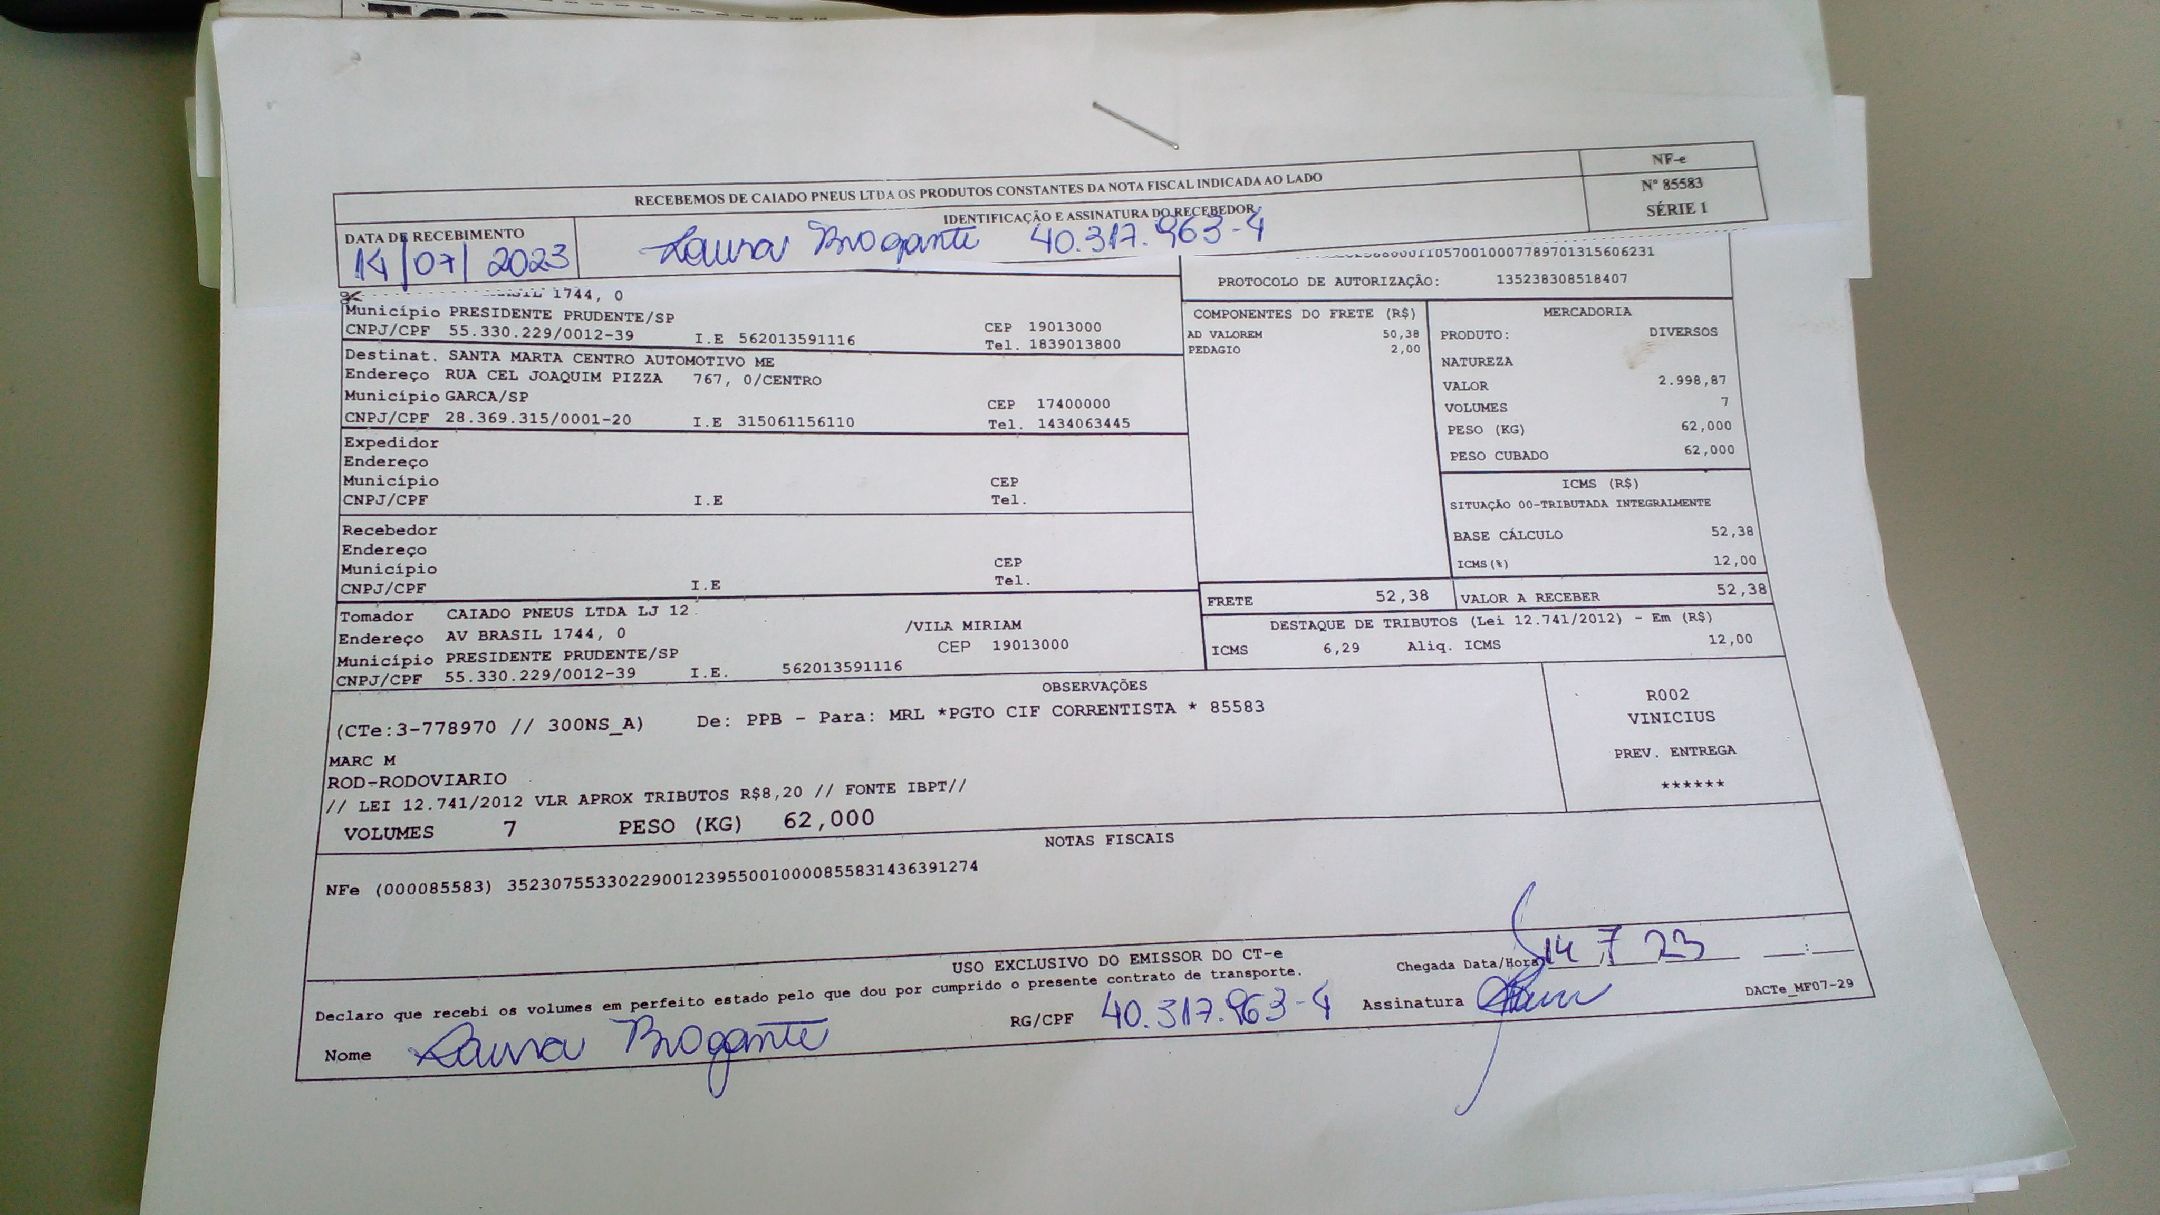 RECEBEMOS DE CAIADO PNEUS LTDA OS PRODUTOS CONSTANTES DA NOTA FISCAL INDICADA AO LADO
NF-e
Nº 85583
SÉRIE 1
DATA DE RECEBIMENTO
14/07/2023
IDENTIFICAÇÃO E ASSINATURA DO RECEBEDOR
Laura Brogante 40.317.963-4
PROTOCOLO DE AUTORIZAÇÃO: 135238308518407
1744, 0
Município PRESIDENTE PRUDENTE/SP
CEP 19013000
CNPJ/CPF 55.330.229/0012-39 I.E 562013591116 Tel. 1839013800
Destinat. SANTA MARTA CENTRO AUTOMOTIVO ME
Endereço RUA CEL JOAQUIM PIZZA 767, 0/CENTRO
Município GARCA/SP CEP 17400000
CNPJ/CPF 28.369.315/0001-20 I.E 315061156110 Tel. 1434063445
Expedidor
Endereço
Município CEP
CNPJ/CPF I.E Tel.
Recebedor
Endereço
Município CEP
CNPJ/CPF I.E Tel.
Tomador CAIADO PNEUS LTDA LJ 12
Endereço AV BRASIL 1744, 0 /VILA MIRIAM
Município PRESIDENTE PRUDENTE/SP CEP 19013000
CNPJ/CPF 55.330.229/0012-39 I.E. 562013591116
COMPONENTES DO FRETE (R$)
AD VALOREM 50,38
PEDAGIO 2,00
MERCADORIA
PRODUTO: DIVERSOS
NATUREZA
VALOR 2.998,87
VOLUMES 7
PESO (KG) 62,000
PESO CUBADO 62,000
ICMS (R$)
SITUAÇÃO 00-TRIBUTADA INTEGRALMENTE
BASE CÁLCULO 52,38
ICMS(%) 12,00
FRETE 52,38 VALOR A RECEBER 52,38
DESTAQUE DE TRIBUTOS (Lei 12.741/2012) - Em (R$)
ICMS 6,29 Aliq. ICMS 12,00
OBSERVAÇÕES
(CTe:3-778970 // 300NS_A) De: PPB - Para: MRL *PGTO CIF CORRENTISTA * 85583
MARC M
ROD-RODOVIARIO
// LEI 12.741/2012 VLR APROX TRIBUTOS R$8,20 // FONTE IBPT//
VOLUMES 7 PESO (KG) 62,000
R002
VINICIUS
PREV. ENTREGA
******
NOTAS FISCAIS
NFe (000085583) 35230755330229001239550010000855831436391274
USO EXCLUSIVO DO EMISSOR DO CT-e
Declaro que recebi os volumes em perfeito estado pelo que dou por cumprido o presente contrato de transporte.
Chegada Data/Hora 14 7 23 __:__
Nome Laura Brogante RG/CPF 40.317.963-4 Assinatura
DACTe_MF07-29